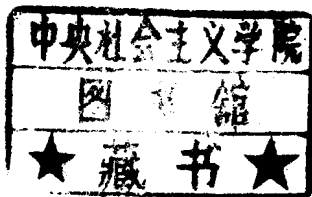 中央社会主义学院
图 馆
★ 藏 书 ★